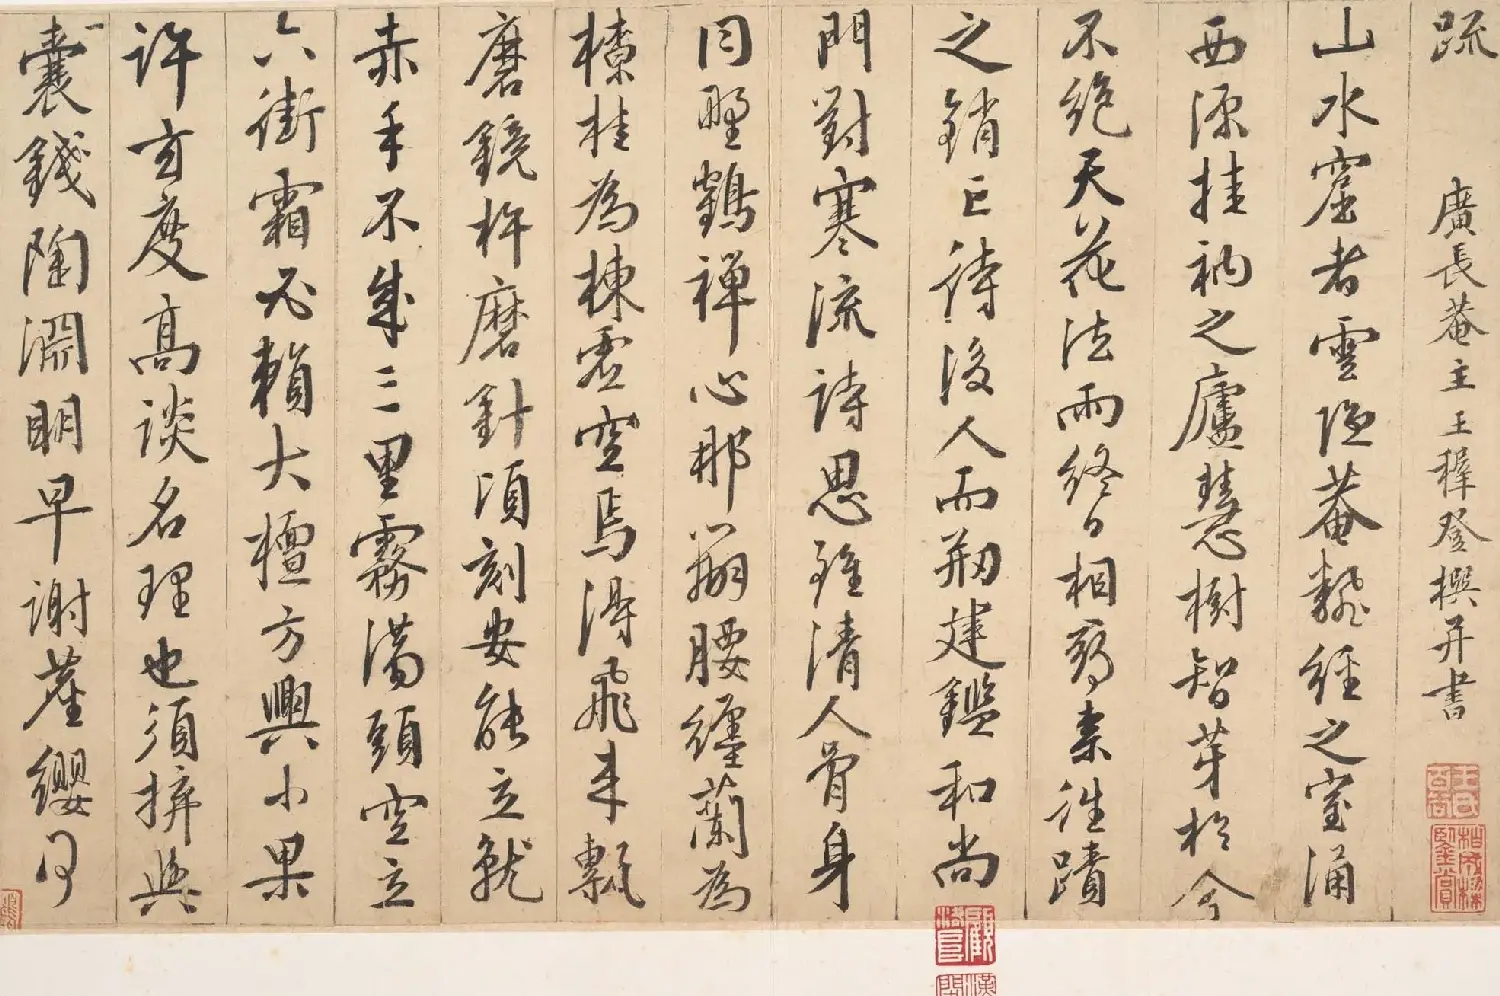 疏　廣長菴主王穉登撰并書
山水窟者雲隱菴翻經之室涌
西源挂衲之廬慧樹智芽於今
不絕天花法雨終日相柰往蹟
之銷亡待後人而剏建鑑和尚
門對寒流詩思雖清人骨身
同野鶴禪心那辦腰纏蘭為
橑桂為棟虛空焉得飛來甎
磨鏡杵磨針頃刻安能立就
赤手不成三里霧滿頭空立
六街霜必賴大檀方興小果
許玄度高談名理也須拚與
一囊錢陶淵明早謝塵纓何